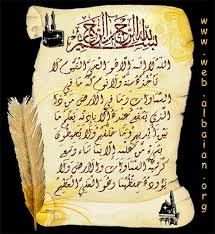 بسم الله الرحمن الرحيم
الله لا إله إلا هو الحي القيوم لا
تأخذه سنة ولا نوم له ما في
السماوات وما في الأرض من ذا
الذي يشفع عنده إلا بإذنه يعلم ما
بين أيديهم وما خلفهم ولا يحيطون
بشيء من علمه إلا بما شاء وسع
كرسيه السماوات والأرض ولا
يؤوده حفظهما وهو العلي العظيم
www.web-albaian.org